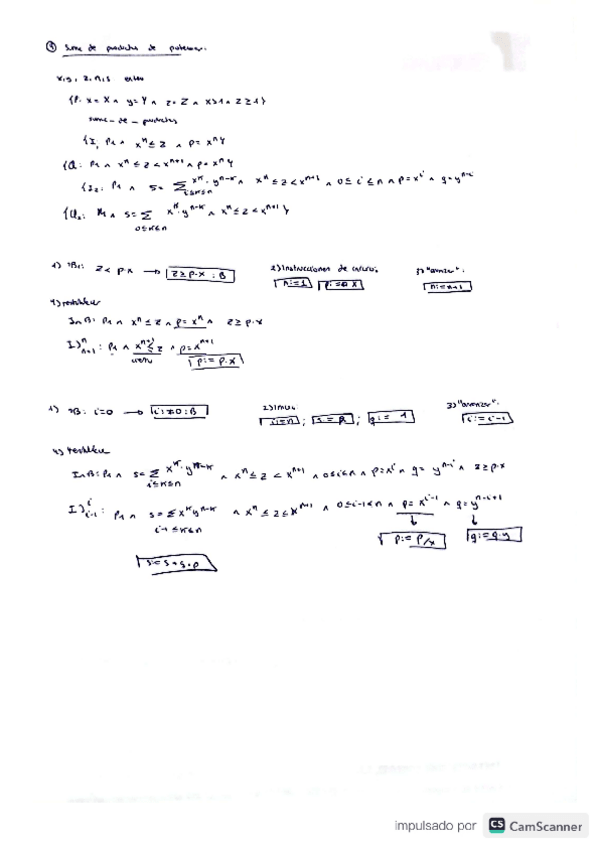 Suma de productos de potencias.
x, y, z, n, s enteros
{P: x = X ∧ y = Y ∧ z = Z ∧ x>1 ∧ z≥1}
suma-de-productos
{I₁ P₁ ∧ xⁿ ≤ z ∧ p = xⁿ}
{Q: P₁ ∧ xⁿ ≤ z < xⁿ⁺¹ ∧ p = xⁿ}
{I₂: P₁ ∧ s = ∑ i≤k≤n xᵏ·yⁿ⁻ᵏ ∧ xⁿ ≤ z < xⁿ⁺¹ ∧ 0 ≤ i ≤ n ∧ p = xⁱ ∧ q = yⁿ⁻ⁱ
s = ∑ 0≤k≤n xᵏ·yⁿ⁻ᵏ ∧ xⁿ ≤ z < xⁿ⁺¹}
1) ¬B₁: z < p·x → z ≥ p·x : B
2) Instrucciones de
3) "avanzar":
p := x
n := n+1
4) restablecer
I ∧ B: P₁ ∧ xⁿ ≤ z ∧ p = xⁿ ∧ z ≥ p·x
I)ⁿₙ₊₁: P₁ ∧ xⁿ⁺¹ ≤ z ∧ p = xⁿ⁺¹
p := p·x
1) ¬B: i=0 → i≠0 : B
3) "avanzar":
i := n ; q := 1
i := i-1
4) restablecer
I ∧ B: P₁ ∧ s = ∑ i≤k≤n xᵏ yⁿ⁻ᵏ ∧ xⁿ ≤ z < xⁿ⁺¹ ∧ 0≤i≤n ∧ p = xⁱ ∧ q = yⁿ⁻ⁱ ∧ z ≥ p·x
I)ⁱᵢ₋₁: P₁ ∧ s = ∑ i-1≤k≤n xᵏ yⁿ⁻ᵏ ∧ xⁿ ≤ z ≤ xⁿ⁺¹ ∧ 0≤i-1≤n ∧ p = xⁱ⁻¹ ∧ q = yⁿ⁻ⁱ⁺¹
p := p/x
q := q·y
impulsado por CS CamScanner